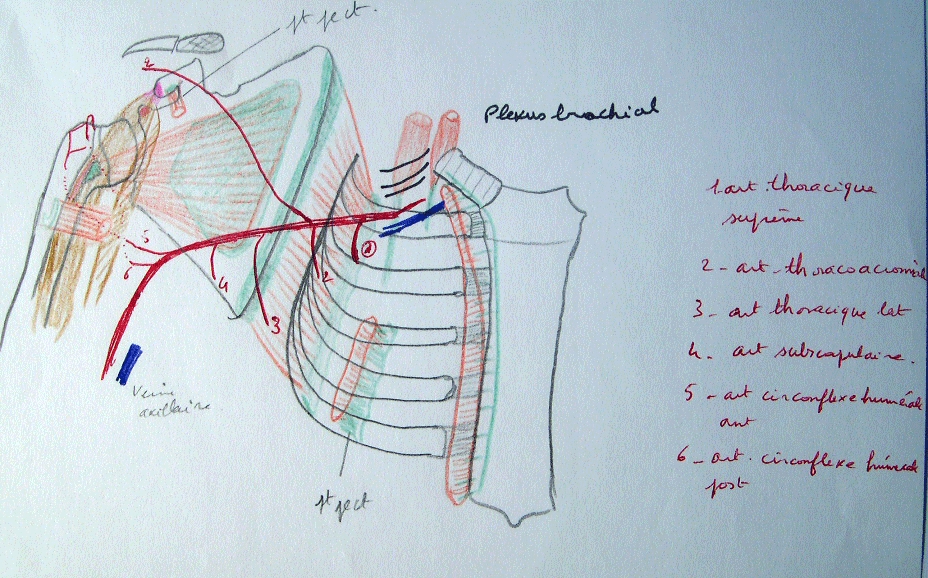 pt pect.
Plexus brachial
1 art. thoracique
suprême
2 - art - thoracoacromial
3 - art thoracique lat
4 - art subscapulaire.
5 - art circonflexe humérale
ant
6 - art. circonflexe humérale
post
2
1
2
3
4
5
6
Veine
axillaire
pt pect